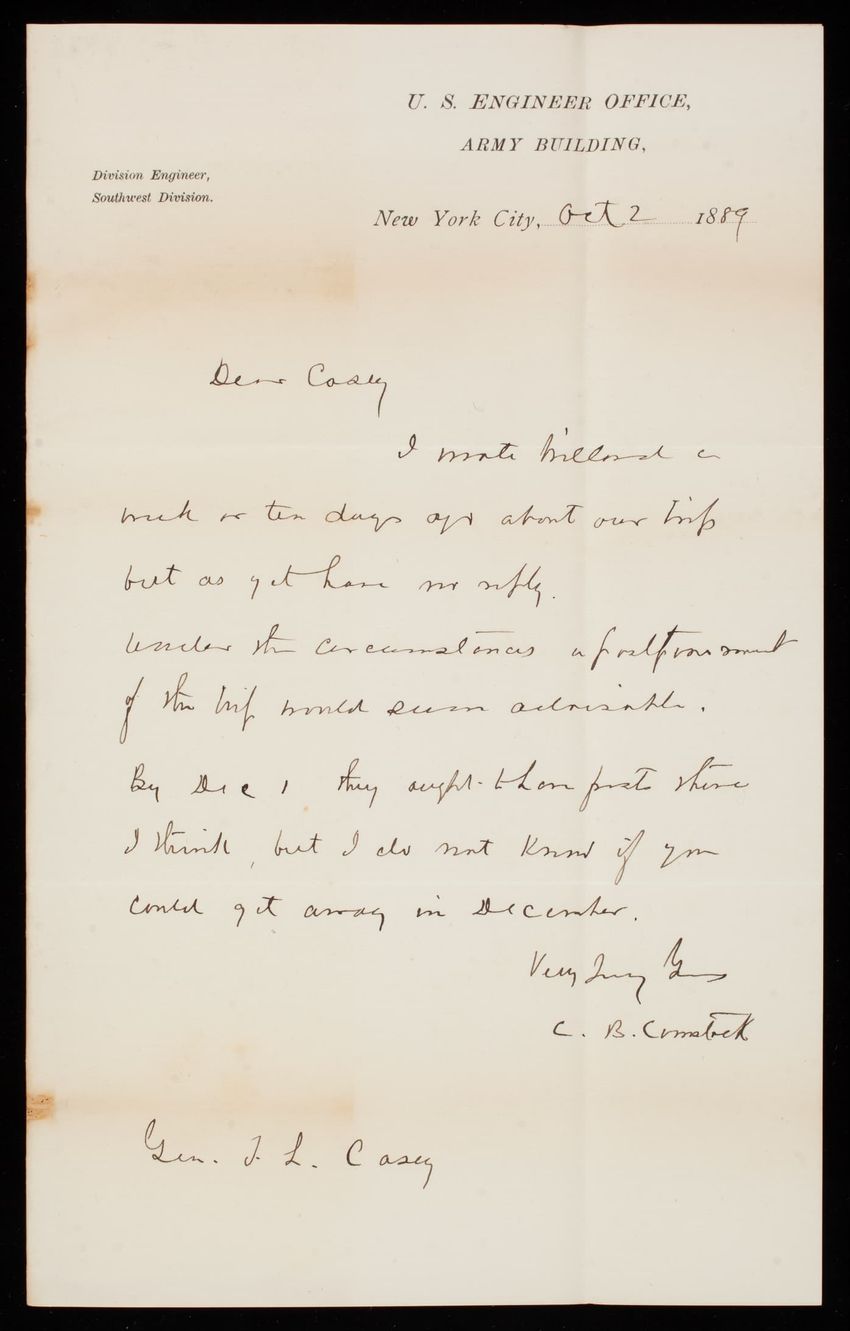 U. S. ENGINEER OFFICE,
ARMY BUILDING,
Division Engineer,
Southwest Division.
New York City, Oct 2 1889
Dear Casey
I wrote Millard a
week or ten days ago about our trip
but as yet have no reply.
Under the circumstances a postponement
of the trip would seem advisable.
By Dec 1 they ought to have frosts there
I think, but I do not know if you
could get away in December.
Very Truly Yours
C. B. Comstock
Gen. T. L. Casey